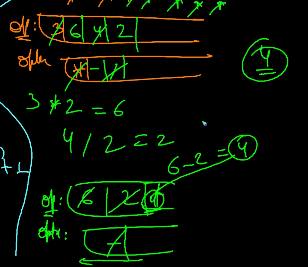 op: 3 6 4 2
optr: * - /
4
3 * 2 = 6
4 / 2 = 2
6 - 2 = 4
op: 6 2 4
optr: -